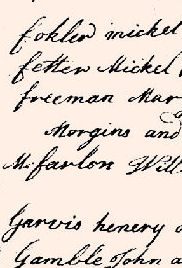 fokler mickel
fetter Mickel
freeman Mar
Morgins and
Mcfarlon Will
Garvis henery
Gamble John a